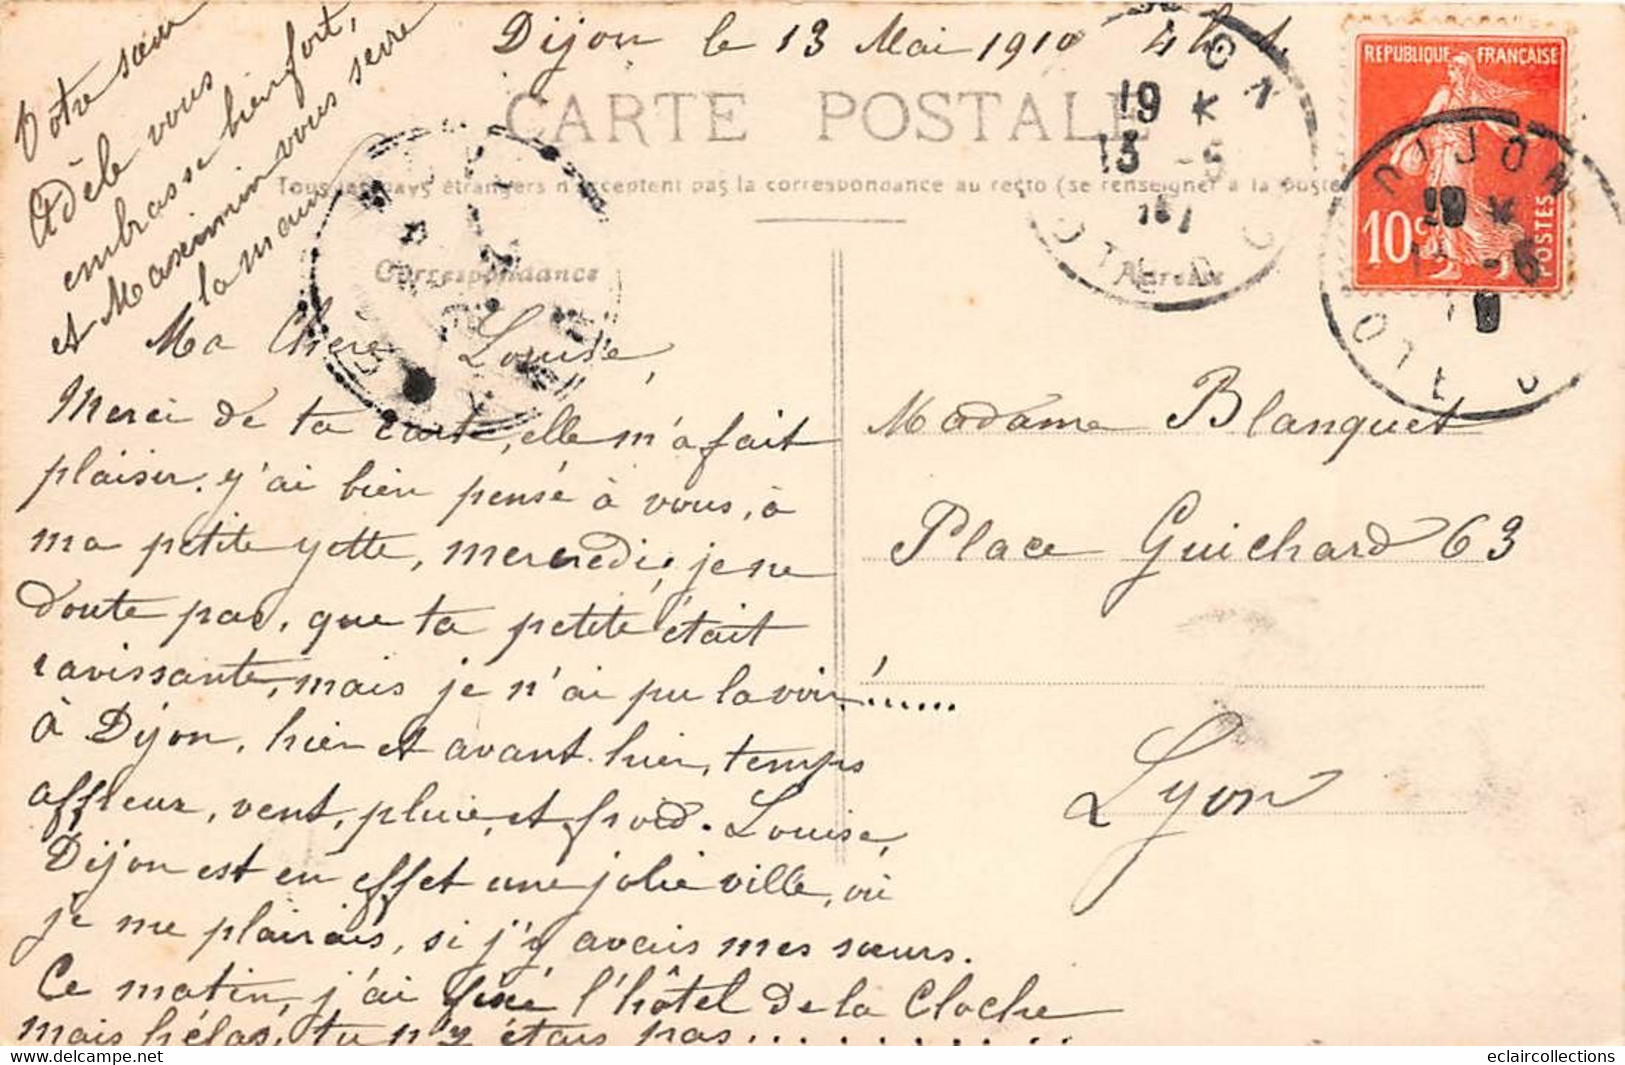 Dijon le 13 Mai 1910 4h
CARTE POSTALE
Tous les pays étrangers n'acceptent pas la correspondance au recto (se renseigner à la poste
Correspondance
REPUBLIQUE FRANÇAISE
10c
POSTES
DIJON
Ma Chère Louise,
Merci de ta carte, elle m'a fait
plaisir. j'ai bien pensé à vous, à
ma petite yette, mercredi, je ne
doute pas, que ta petite était
ravissante, mais je n'ai pu la voir!......
à Dijon, hier et avant hier, temps
affreux, vent, pluie, et froid. Louise,
Dijon est en effet une jolie ville, où
je me plairais, si j'y avais mes sœurs.
Ce matin, j'ai fixé l'hôtel de la Cloche
mais hélas, tu n'y étais pas............
Votre sœur
Adèle vous
embrasse bien fort,
et Maximin vous serre
la main
Madame Blanquet
Place Guichard 63
Lyon
eclaircollections